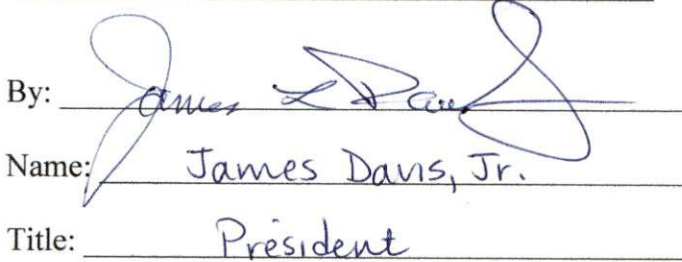 By: James L Davis
Name: James Davis, Jr.
Title: President